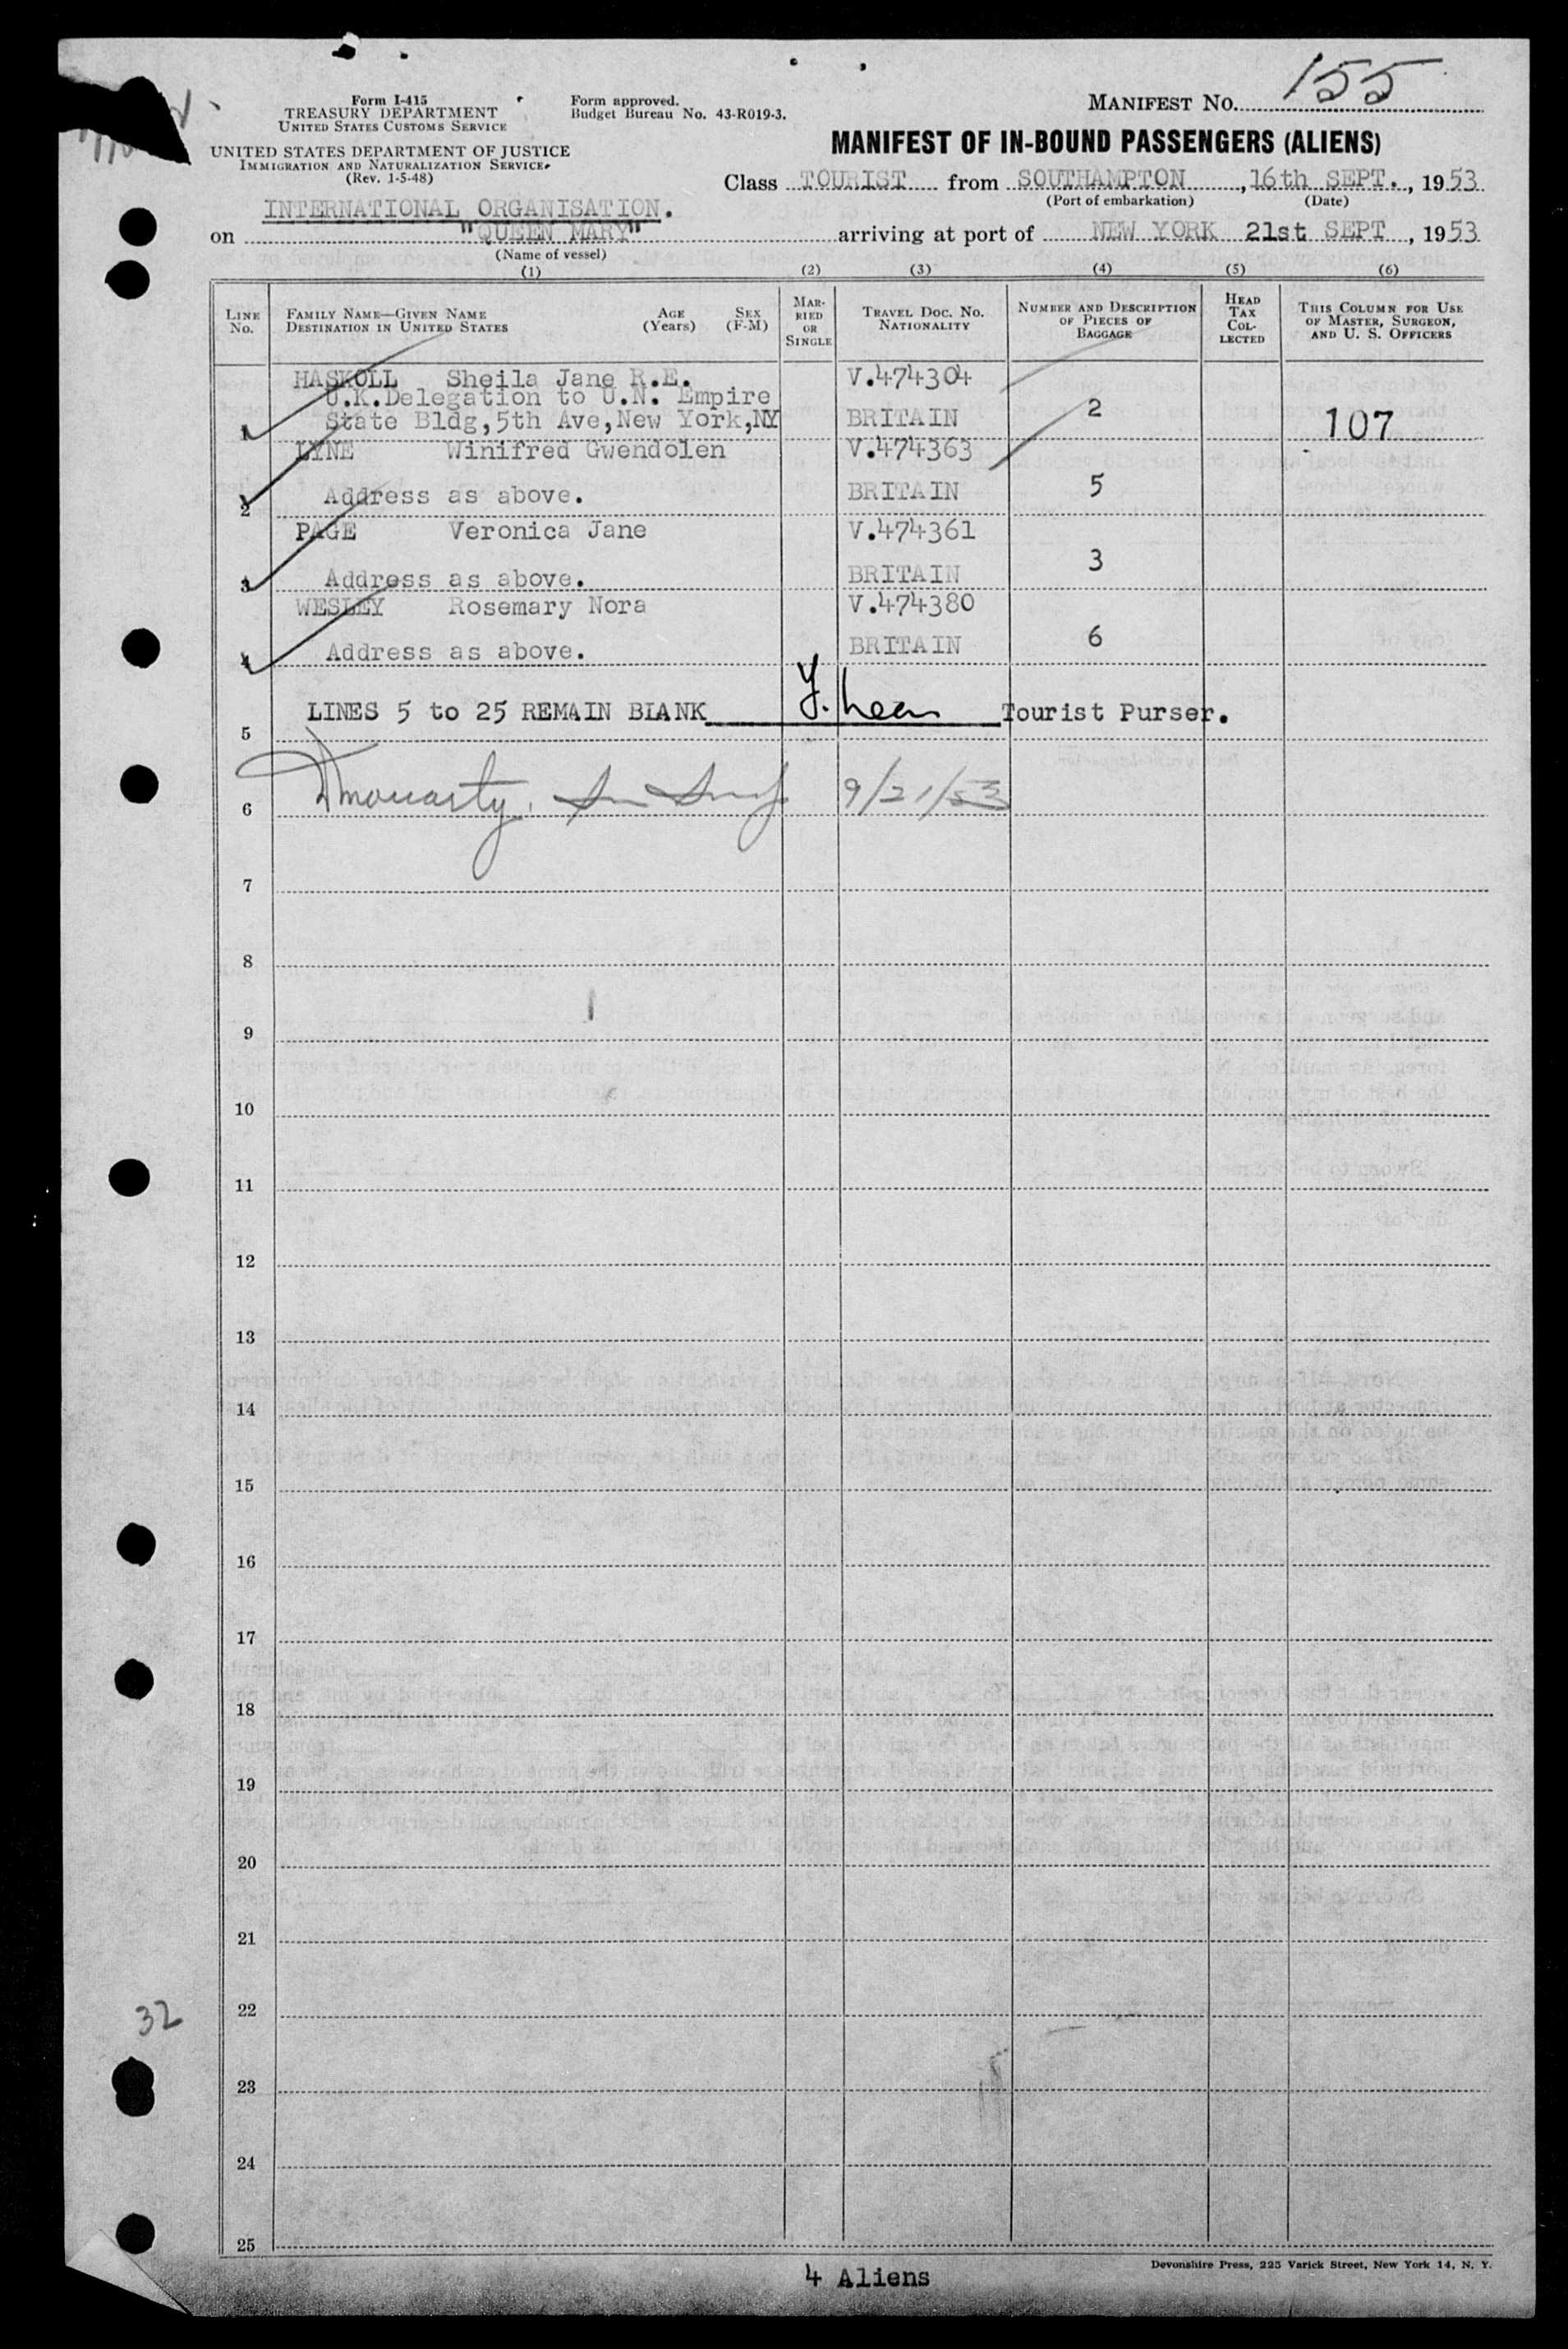 MANIFEST NO. 155
Form I-415
TREASURY DEPARTMENT
UNITED STATES CUSTOMS SERVICE
UNITED STATES DEPARTMENT OF JUSTICE
IMMIGRATION AND NATURALIZATION SERVICE
(Rev. 1-5-48)
Form approved.
Budget Bureau No. 43-R019-3.
MANIFEST OF IN-BOUND PASSENGERS (ALIENS)
Class TOURIST from SOUTHAMPTON, 16th SEPT., 1953
(Port of embarkation) (Date)
INTERNATIONAL ORGANISATION.
on "QUEEN MARY" arriving at port of NEW YORK 21st SEPT, 1953
(Name of vessel)
(1) (2) (3) (4) (5) (6)
LINE No.
FAMILY NAME—GIVEN NAME
DESTINATION IN UNITED STATES
AGE (Years)
SEX (F-M)
MARRIED OR SINGLE
TRAVEL DOC. NO.
NATIONALITY
NUMBER AND DESCRIPTION OF PIECES OF BAGGAGE
HEAD TAX COLLECTED
THIS COLUMN FOR USE OF MASTER, SURGEON, AND U. S. OFFICERS
HASKOLL Sheila Jane R.E. V.474304
U.K.Delegation to U.N. Empire
1 State Bldg,5th Ave,New York,NY BRITAIN 2 107
LYNE Winifred Gwendolen V.474363
2 Address as above. BRITAIN 5
PAGE Veronica Jane V.474361
3 Address as above. BRITAIN 3
WESLEY Rosemary Nora V.474380
4 Address as above. BRITAIN 6
5 LINES 5 to 25 REMAIN BLANK Tourist Purser.
6 9/21/53
7
8
9
10
11
12
13
14
15
16
17
18
19
20
21
22
32
23
24
25
4 Aliens
Devonshire Press, 225 Varick Street, New York 14, N. Y.